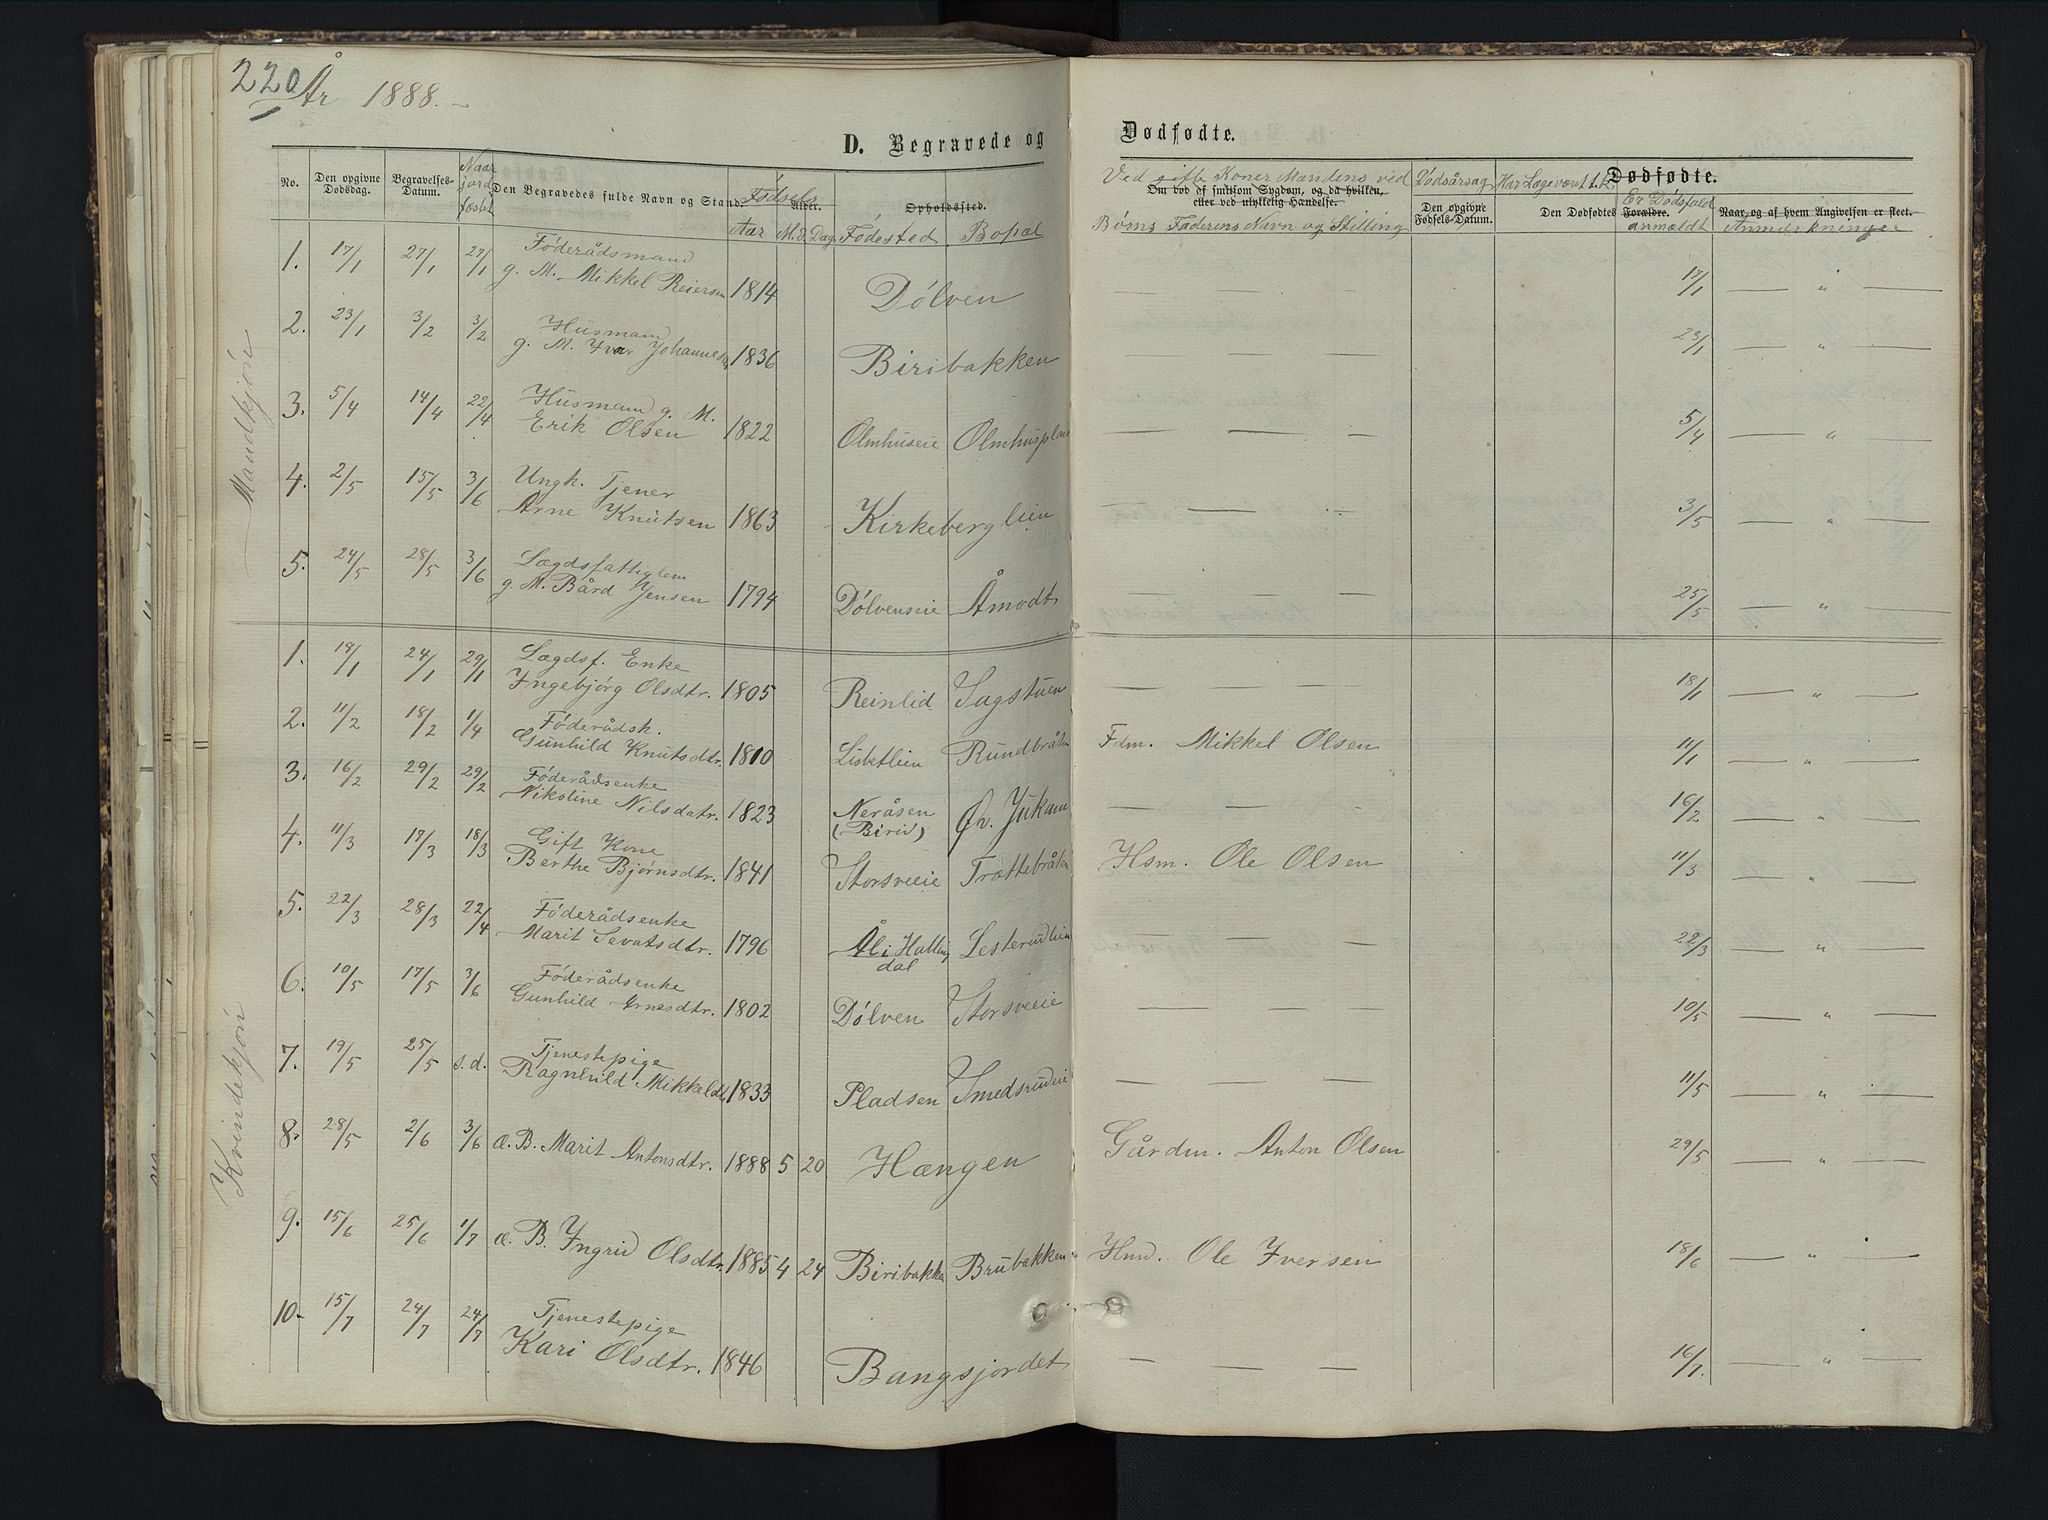 220
År 1888.
D. Begravede og Dødfødte.
No. Den opgivne Dødsdag. Begravelses-Datum. Naar jordfæstet Den Begravedes fulde Navn og Stand. Fødsels Alder. Opholdssted.
Aar M. & Dag Fødested Bopæl
Ved gifte Koner Mandens ved
Om død af smitsom Sygdom, og da hvilken,
eller ved ulykkelig Hændelse.
Børns Faderens Navn og Stilling
Dødsårsag Har Læge været t.k. Dødfødte.
Den opgivne Fødsels-Datum. Den Dødfødtes Forældre. Er Dødsfald anmældt Naar, og af hvem Angivelsen er skeet.
Anmærkninger
Mandkjön
1. 17/1 27/1 27/1 Föderådsmand
g. M. Mikkel Reiersen 1814 Dölven — — — 17/1 — " —
2. 23/1 3/2 3/2 Husmand
g. M. Ivar Johannesen 1836 Biribakken — — — 23/1 — " —
3. 5/4 14/4 22/4 Husmand g. M.
Erik Olsen 1822 Olmhuseie Olmhuspladsen — — — 5/4 — " —
4. 2/5 15/5 3/6 Ungk. Tjener
Arne Knutsen 1863 Kirkeberglien — — — 3/5 — " —
5. 24/5 28/5 3/6 Lægdsfattiglem
g. M. Bård Jensen 1794 Dölvenseie Åmodt — — — 25/5 — " —
Kvindekjön
1. 19/1 24/1 29/1 Lægdsf. Enke
Ingebjörg Olsdtr. 1805 Reinlid Sagstuen — — — 18/1 — " —
2. 11/2 18/2 1/4 Föderådsk.
Gunhild Knutsdtr. 1810 Lisbetlien Rundbråten Fdm. Mikkel Olsen 11/1 — " —
3. 16/2 29/2 29/2 Föderådsenke
Nikoline Nilsdatr. 1823 Neråsen
(Birid) Øv. Jukam — — — 16/2 — " —
4. 11/3 17/3 18/3 Gift Kone
Berthe Bjørnsdtr. 1841 Storsveeie Trættebråten Hsm. Ole Olsen 11/3 — " —
5. 22/3 28/3 22/4 Föderådsenke
Marit Sevatsdtr. 1796 Ål i Halling
dal Lesterudlien — — — 22/3 — " —
6. 10/5 17/5 3/6 Föderådsenke
Gunhild Arnesdtr. 1802 Dölven Storsveeie — — — 10/5 — " —
7. 19/5 25/5 s.d. Tjenestepige
Ragnhild Mikkelsdtr 1833 Pladsen Smedsrudeie — — — 11/5 — " —
8. 28/5 2/6 3/6 æ. B. Marit Antonsdtr. 1888 5 20 Hængen Gårdm. Anton Olsen 29/5 — " —
9. 15/6 25/6 1/7 æ. B. Ingrid Olsdtr. 1885 4 24 Biribakken Brubakken Hmd. Ole Iversen 18/6 — " —
10. 15/7 24/7 24/7 Tjenestepige
Kari Olsdtr. 1846 Bangsjordet — — — 16/7. — " —